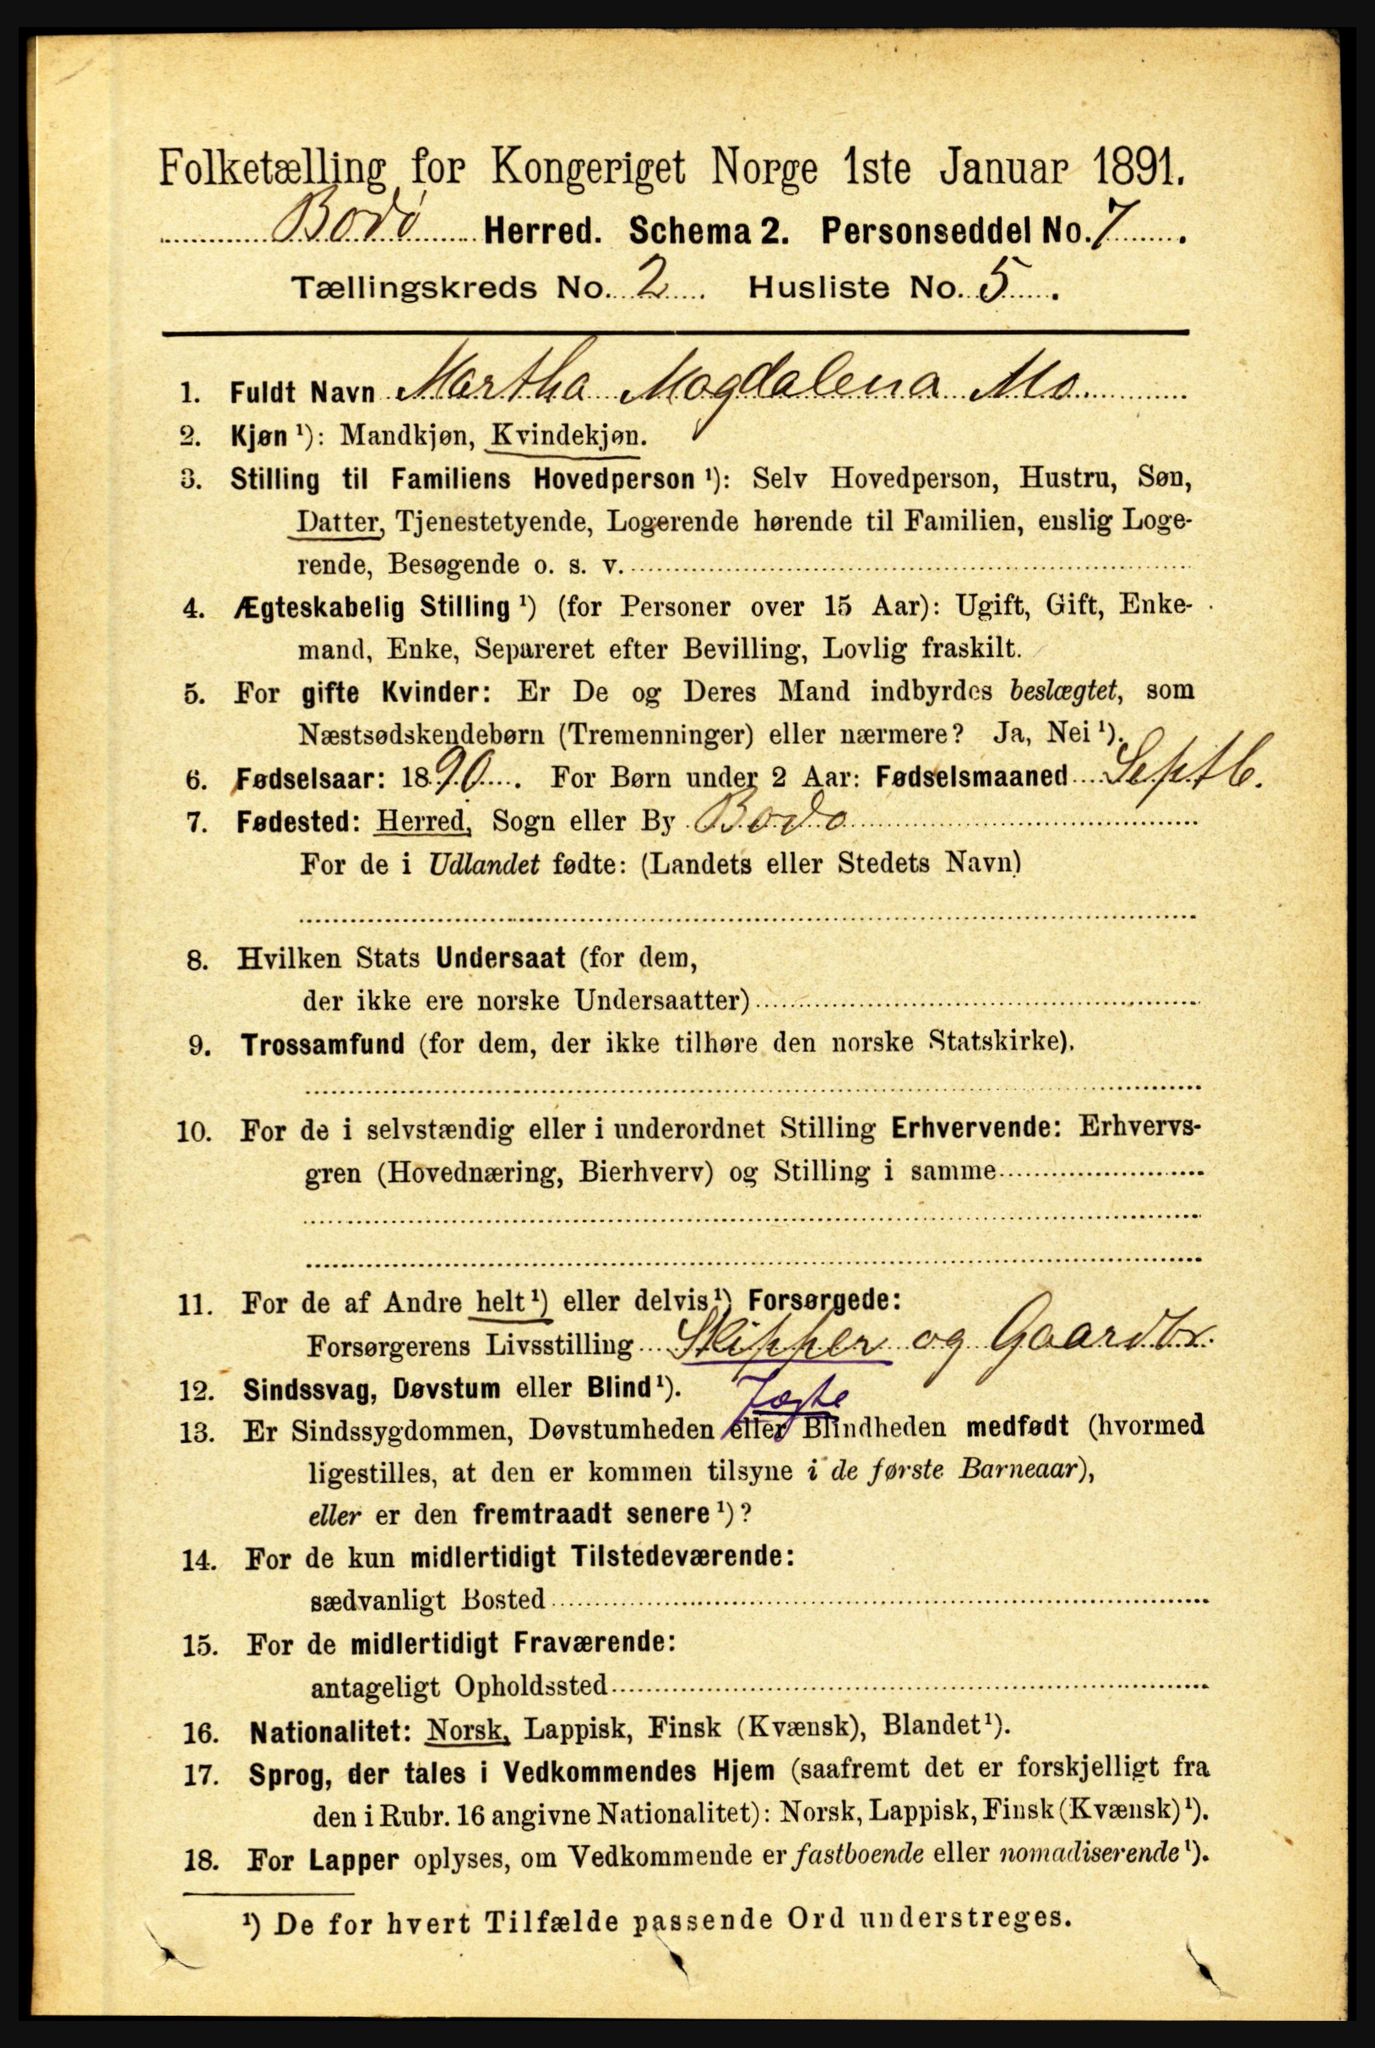 Folketælling for Kongeriget Norge 1ste Januar 1891.
Bodø Herred. Schema 2. Personseddel No. 7.
Tællingskreds No. 2. Husliste No. 5.
1. Fuldt Navn Martha Magdalena Mo
2. Kjøn ¹): Mandkjøn, Kvindekjøn.
3. Stilling til Familiens Hovedperson ¹): Selv Hovedperson, Hustru, Søn,
Datter, Tjenestetyende, Logerende hørende til Familien, enslig Loge-
rende, Besøgende o. s. v.
4. Ægteskabelig Stilling ¹) (for Personer over 15 Aar): Ugift, Gift, Enke-
mand, Enke, Separeret efter Bevilling, Lovlig fraskilt.
5. For gifte Kvinder: Er De og Deres Mand indbyrdes beslægtet, som
Næstsødskendebørn (Tremenninger) eller nærmere? Ja, Nei ¹).
6. Fødselsaar: 1890. For Børn under 2 Aar: Fødselsmaaned Septb.
7. Fødested: Herred, Sogn eller By Bodø
For de i Udlandet fødte: (Landets eller Stedets Navn)
8. Hvilken Stats Undersaat (for dem,
der ikke ere norske Undersaatter)
9. Trossamfund (for dem, der ikke tilhøre den norske Statskirke).
10. For de i selvstændig eller i underordnet Stilling Erhvervende: Erhvervs-
gren (Hovednæring, Bierhverv) og Stilling i samme
11. For de af Andre helt ¹) eller delvis ¹) Forsørgede:
Forsørgerens Livsstilling Skipper og Gaardbr.
Jægte
12. Sindssvag, Døvstum eller Blind ¹).
13. Er Sindssygdommen, Døvstumheden eller Blindheden medfødt (hvormed
ligestilles, at den er kommen tilsyne i de første Barneaar),
eller er den fremtraadt senere ¹)?
14. For de kun midlertidigt Tilstedeværende:
sædvanligt Bosted
15. For de midlertidigt Fraværende:
antageligt Opholdssted
16. Nationalitet: Norsk, Lappisk, Finsk (Kvænsk), Blandet ¹).
17. Sprog, der tales i Vedkommendes Hjem (saafremt det er forskjelligt fra
den i Rubr. 16 angivne Nationalitet): Norsk, Lappisk, Finsk (Kvænsk) ¹).
18. For Lapper oplyses, om Vedkommende er fastboende eller nomadiserende ¹).
¹) De for hvert Tilfælde passende Ord understreges.